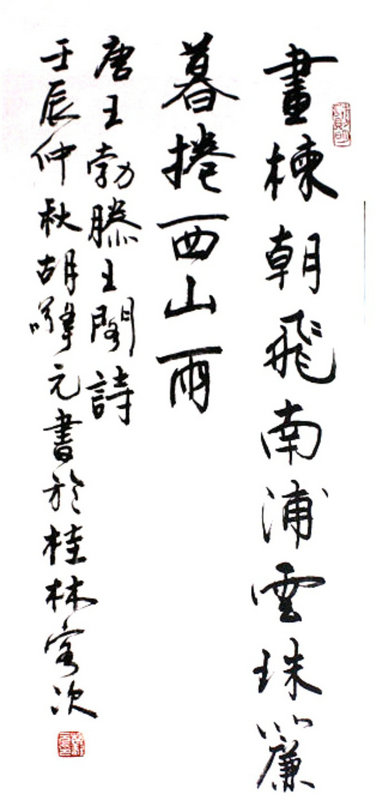 畫棟朝飛南浦雲珠簾
暮捲西山雨
唐王勃滕王閣詩
壬辰仲秋胡嶂元書於桂林客次